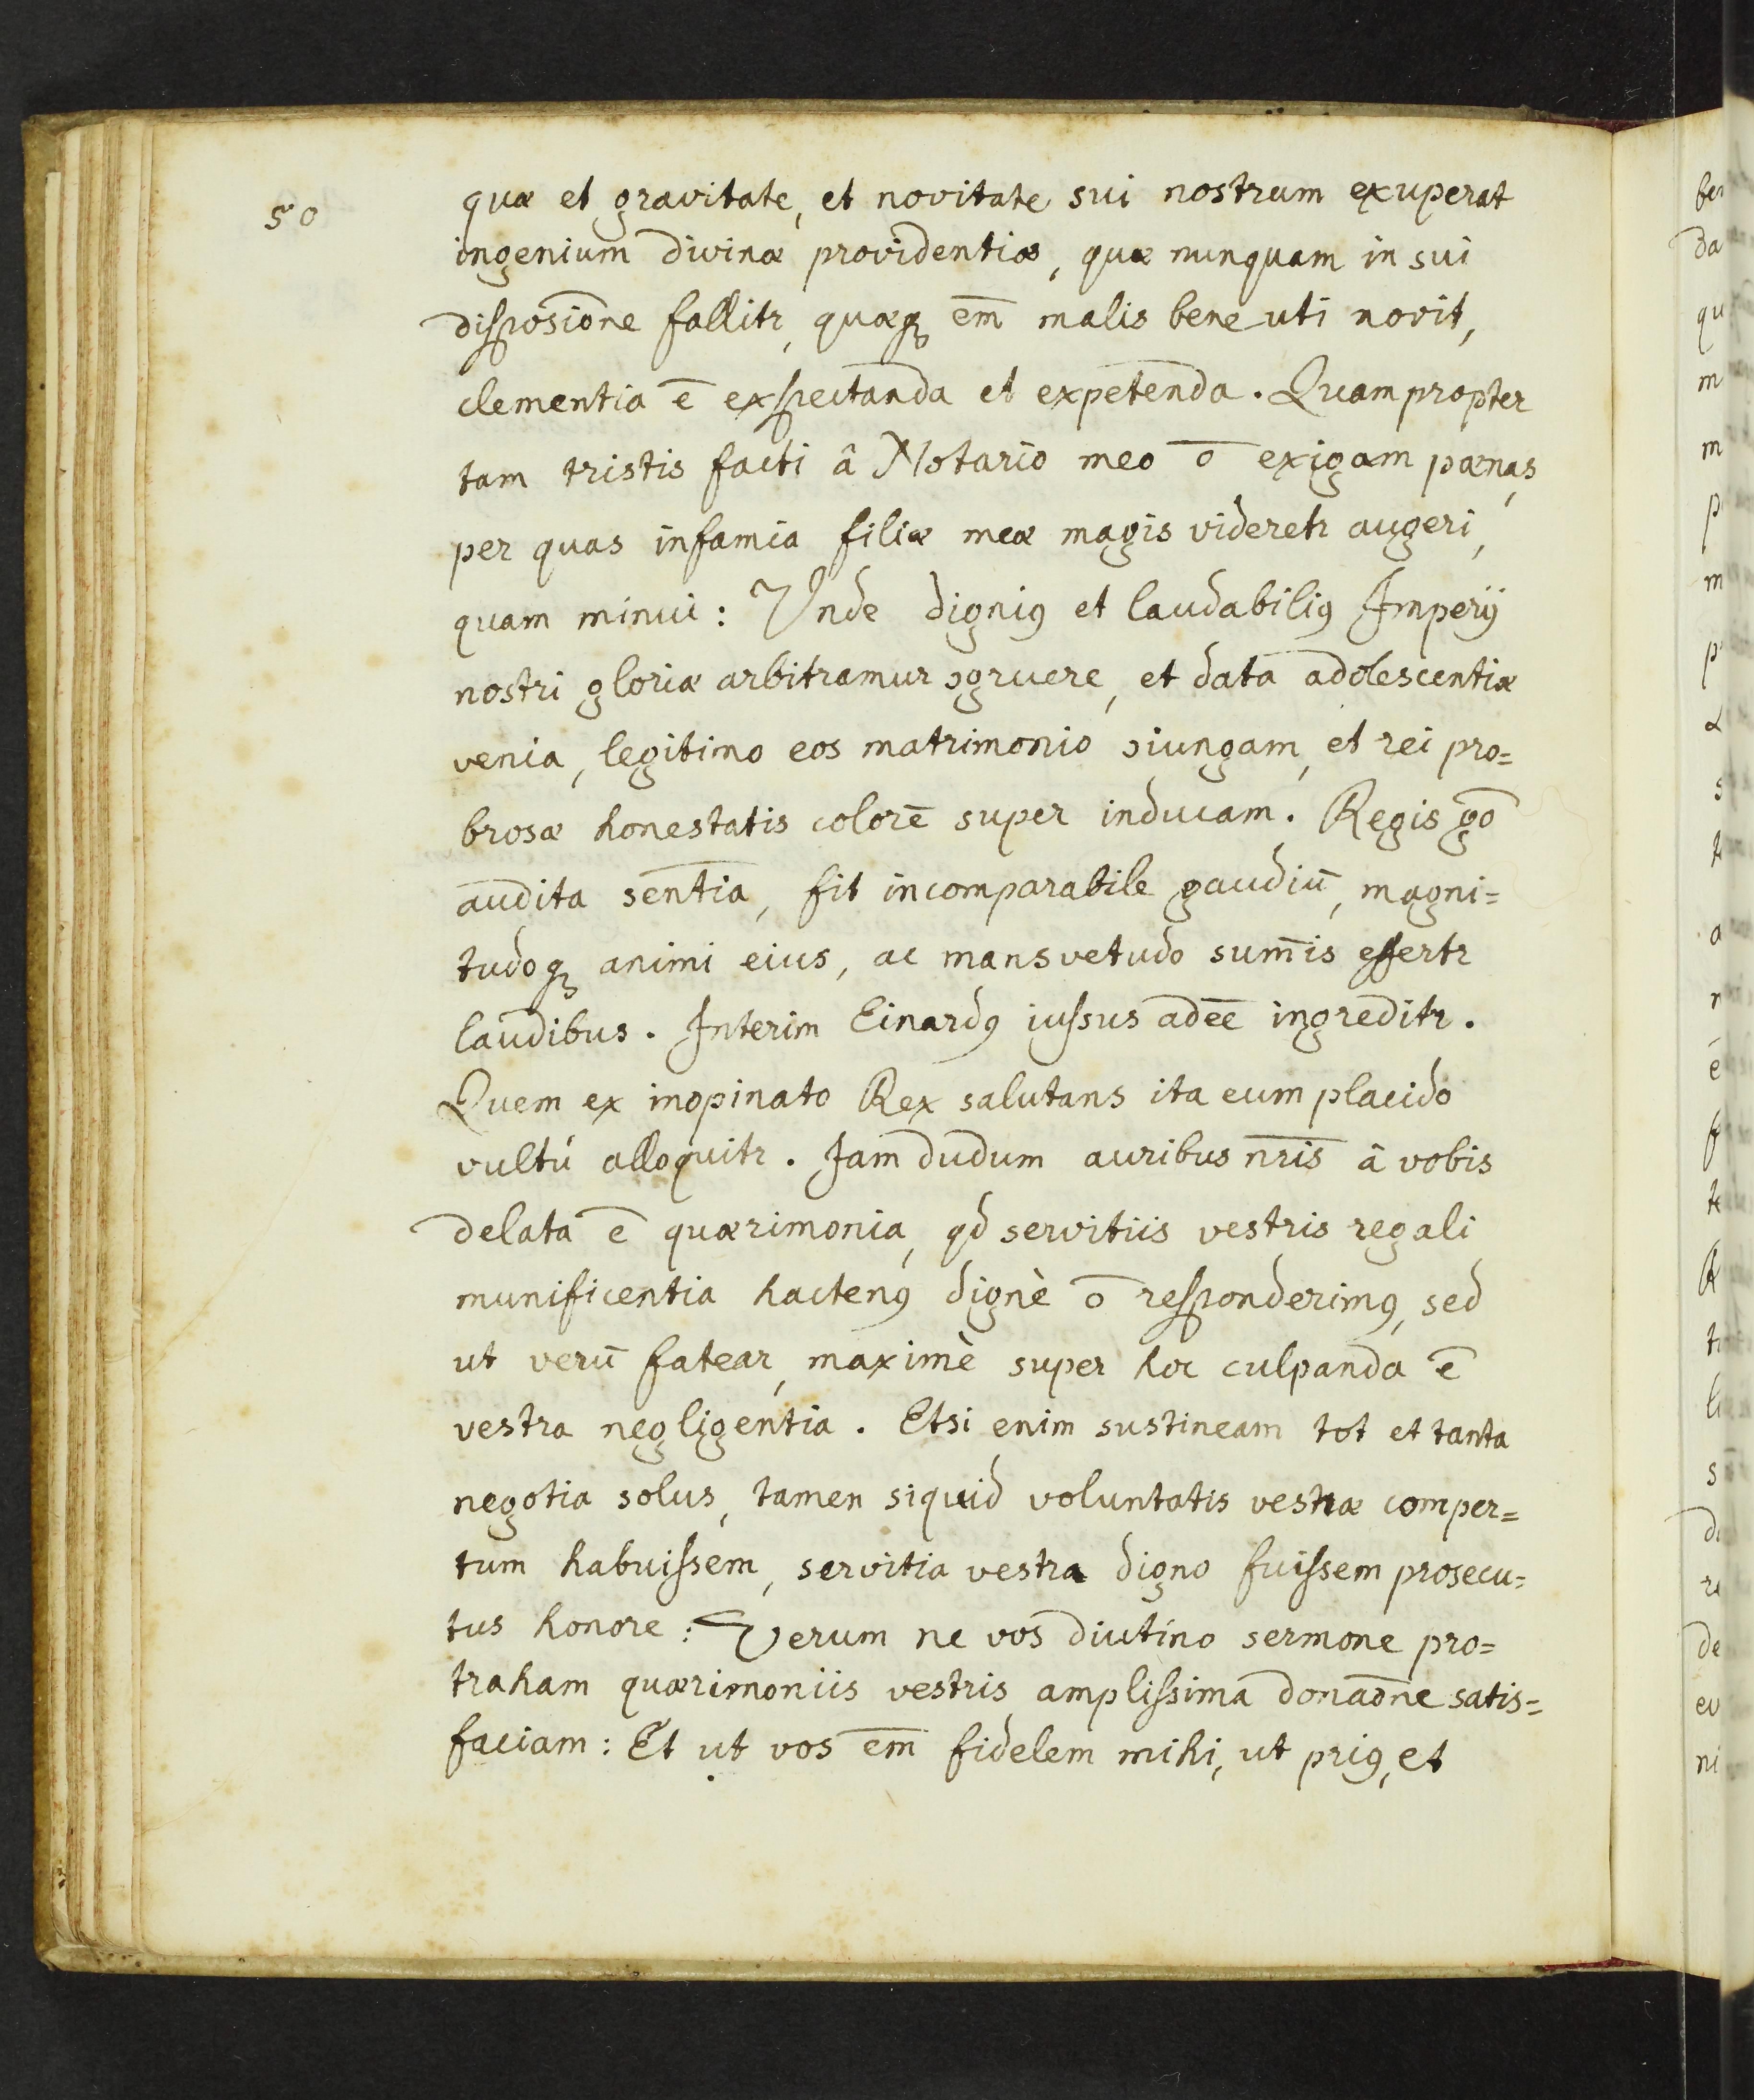 50
quæ et gravitate, et novitate sui nostrum exuperat
ingenium divinæ providentiæ, quæ nunquam in sui
disposiōne fallitr, quæq₃ em̄ malis bene uti novit,
clementia ē exspectanda et expetenda. Quampropter
tam tristis facti â Notario meo ō exigam pænas,
per quas infamia filiæ meæ magis videretr augeri,
quam minui: Vnde digniꝯ et laudabiliꝯ Imperij
nostri gloriæ arbitramur ɔgruere, et data adolescentiæ
venia, legitimo eos matrimonio ɔiungam, et rei pro=
brosæ honestatis colorē super inducam. Regis gō
audita sen̄tia, fit incomparabile gaudiū, magni=
tudoq₃ animi eius, ac mansvetudo sum̄is effertr
laudibus. Interim Einardꝯ iussus adeē ingreditr.
Quem ex inopinato Rex salutans ita eum placido
vultú alloquitr. Iam dudum auribus nr̄is â vobis
delata ē quærimonia, qd servitiis vestris regali
munificentia hactenꝯ dignè ō responderimꝯ, sed
ut verū fatear, maximè super hoc culpanda ē
vestra negligentia. Etsi enim sustineam tot et tanta
negotia solus, tamen siquid voluntatis vestræ comper=
tum habuissem, servitia vestra digno fuissem prosecu=
tus honore: Verum ne vos diutino sermone pro=
traham quærimoniis vestris amplissima donaōne satis=
faciam: Et ut vos em̄ fidelem mihi, ut priꝯ, et